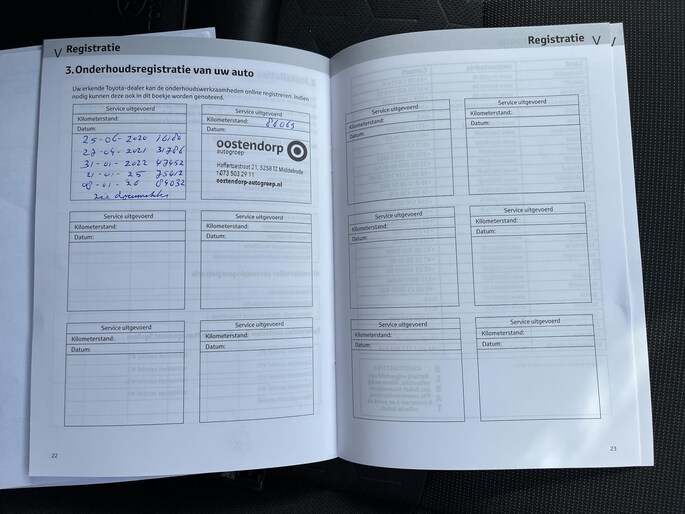 Registratie
3. Onderhoudsregistratie van uw auto
Uw erkende Toyota-dealer kan de onderhoudswerkzaamheden online registreren. Indien
nodig kunnen deze ook in dit boekje worden genoteerd.
Service uitgevoerd
Kilometerstand:
Datum:
25-06-2020 16180
27-04-2021 31786
31-01-2022 47452
21-01-25 75612
08-01-26 84032
zie documenten
Service uitgevoerd
Kilometerstand: 86063
Datum:
oostendorp
autogroep
Hoffertsestraat 21, 5258 TZ Middelrode
t 073 503 29 11
oostendorp-autogroep.nl
Service uitgevoerd
Kilometerstand:
Datum:
Service uitgevoerd
Kilometerstand:
Datum:
Service uitgevoerd
Kilometerstand:
Datum:
Service uitgevoerd
Kilometerstand:
Datum:
22
Registratie
Service uitgevoerd
Kilometerstand:
Datum:
Service uitgevoerd
Kilometerstand:
Datum:
Service uitgevoerd
Kilometerstand:
Datum:
Service uitgevoerd
Kilometerstand:
Datum:
Service uitgevoerd
Kilometerstand:
Datum:
Service uitgevoerd
Kilometerstand:
Datum:
23